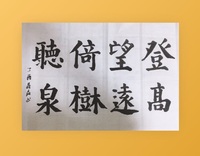 登高
望遠
倚樹
聽泉